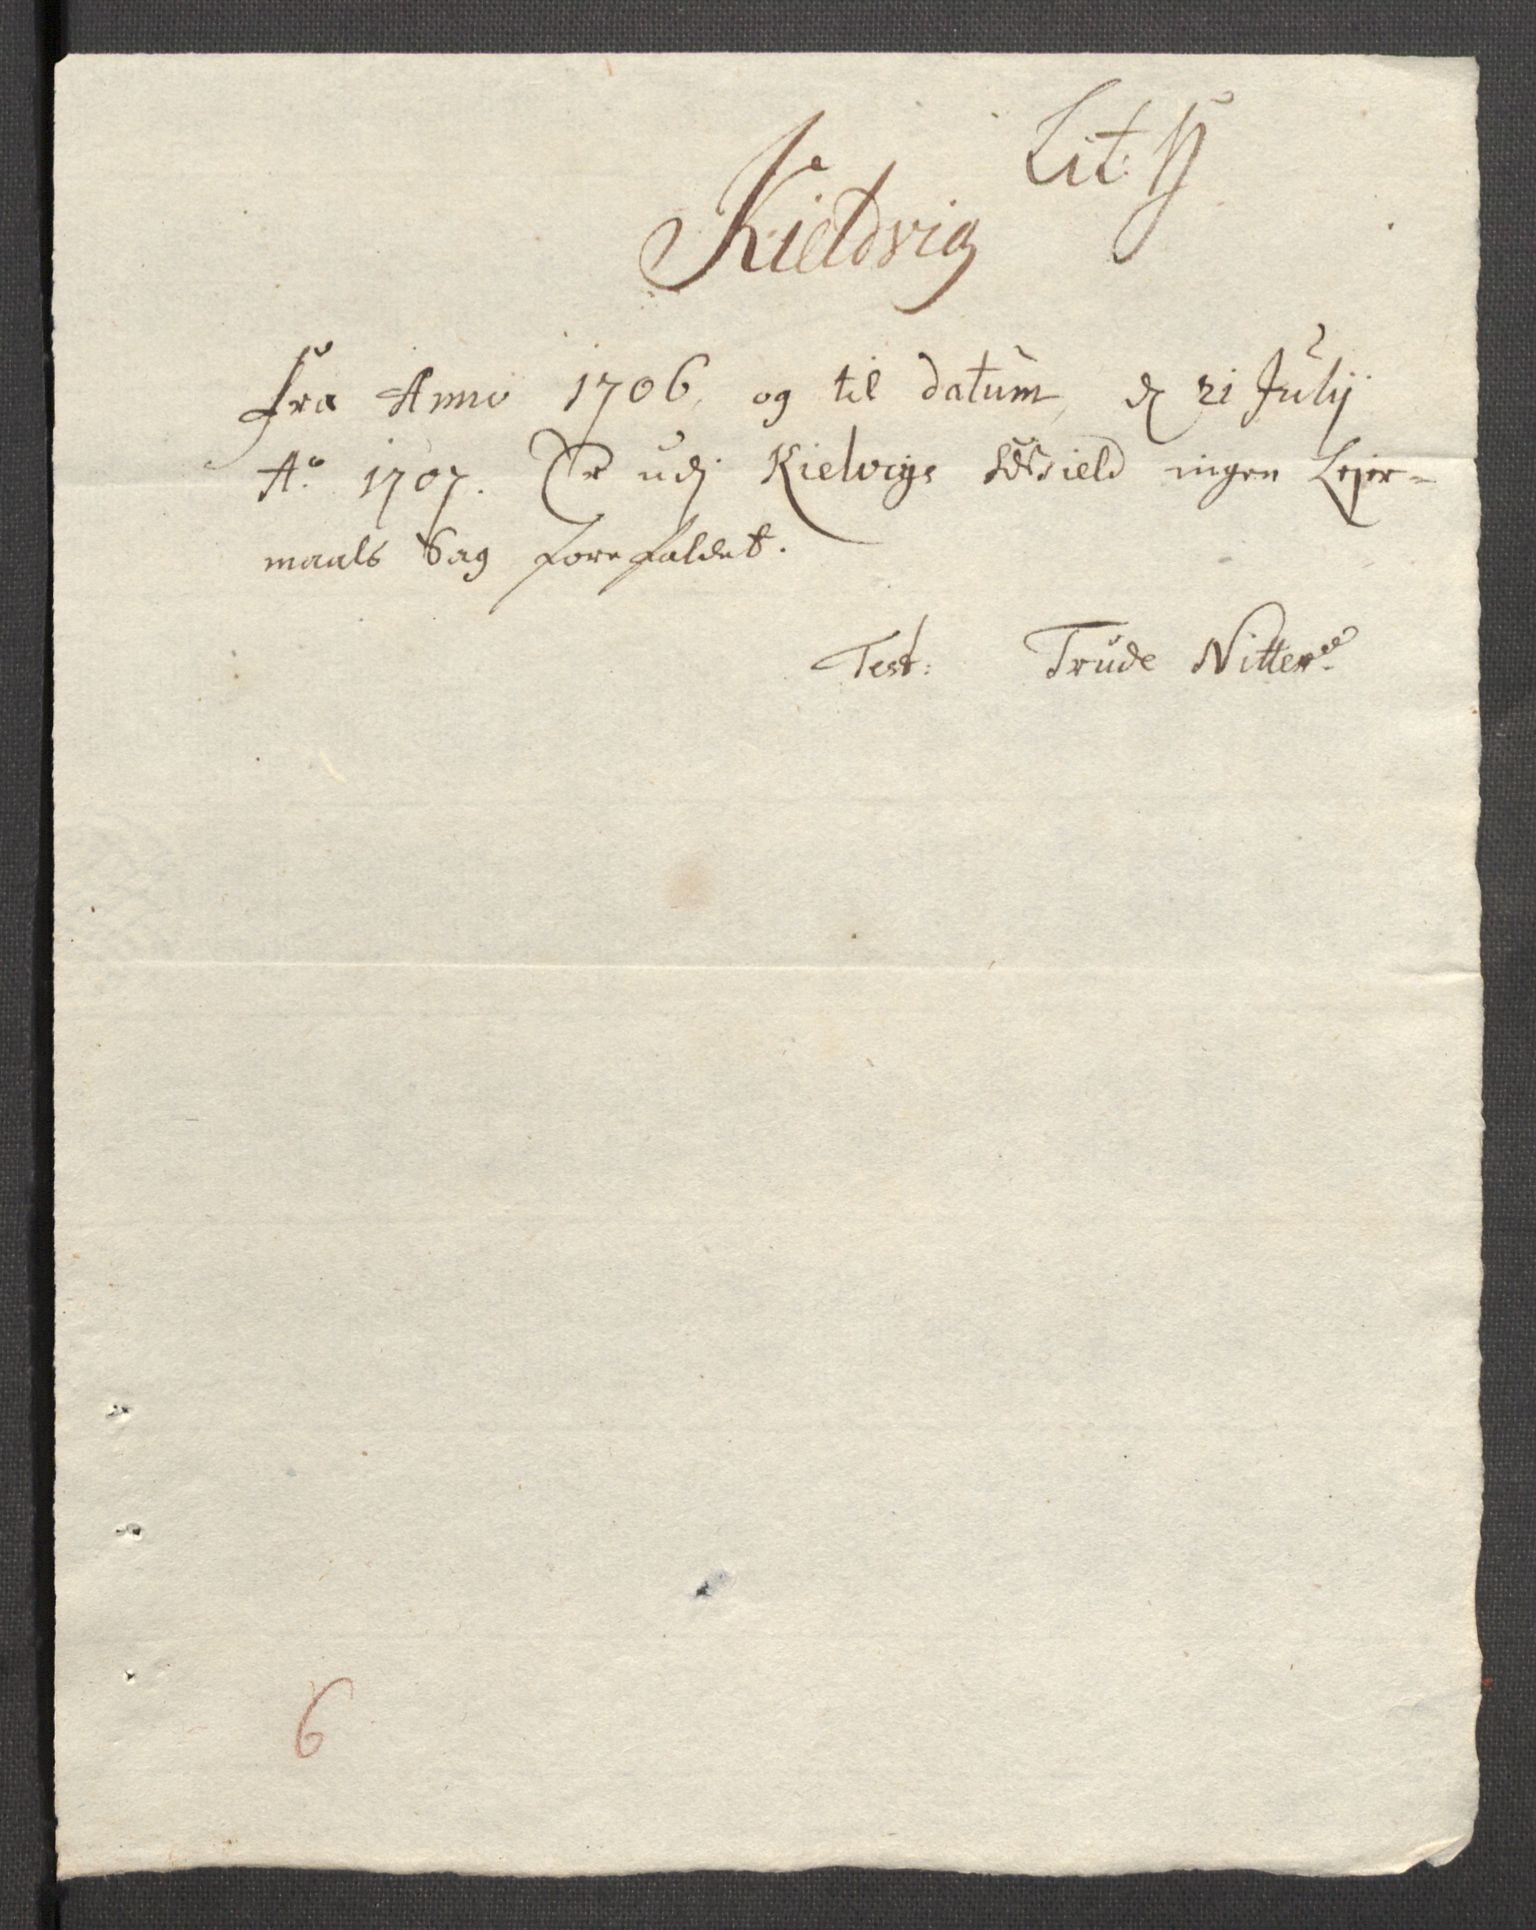 Lit: Y
Kieldvig
Fra Anno 1706, og til datum, d 21 Julij
Ao 1707. Er udj Kielvigs Gield ingen Lejer-
maals Sag forefaldet.
Test: Trude Nitter
6